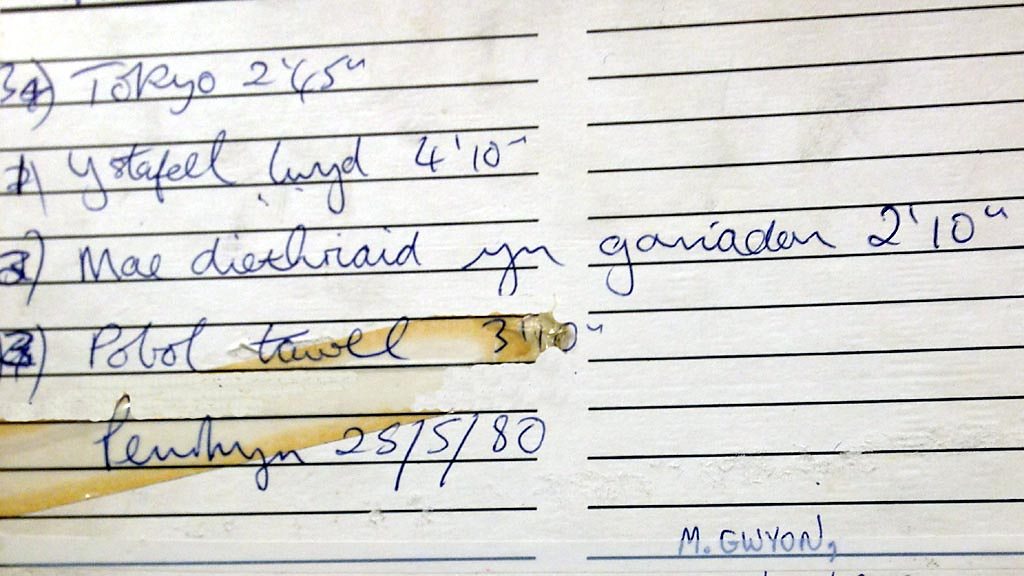 Tokyo 2'45"
Ystafell lwyd 4'10"
3) Mae diethriaid yn ganiadau 2'10"
Pobol tawel 3'10"
Penrhyn 25/5/80
M. GWYON,